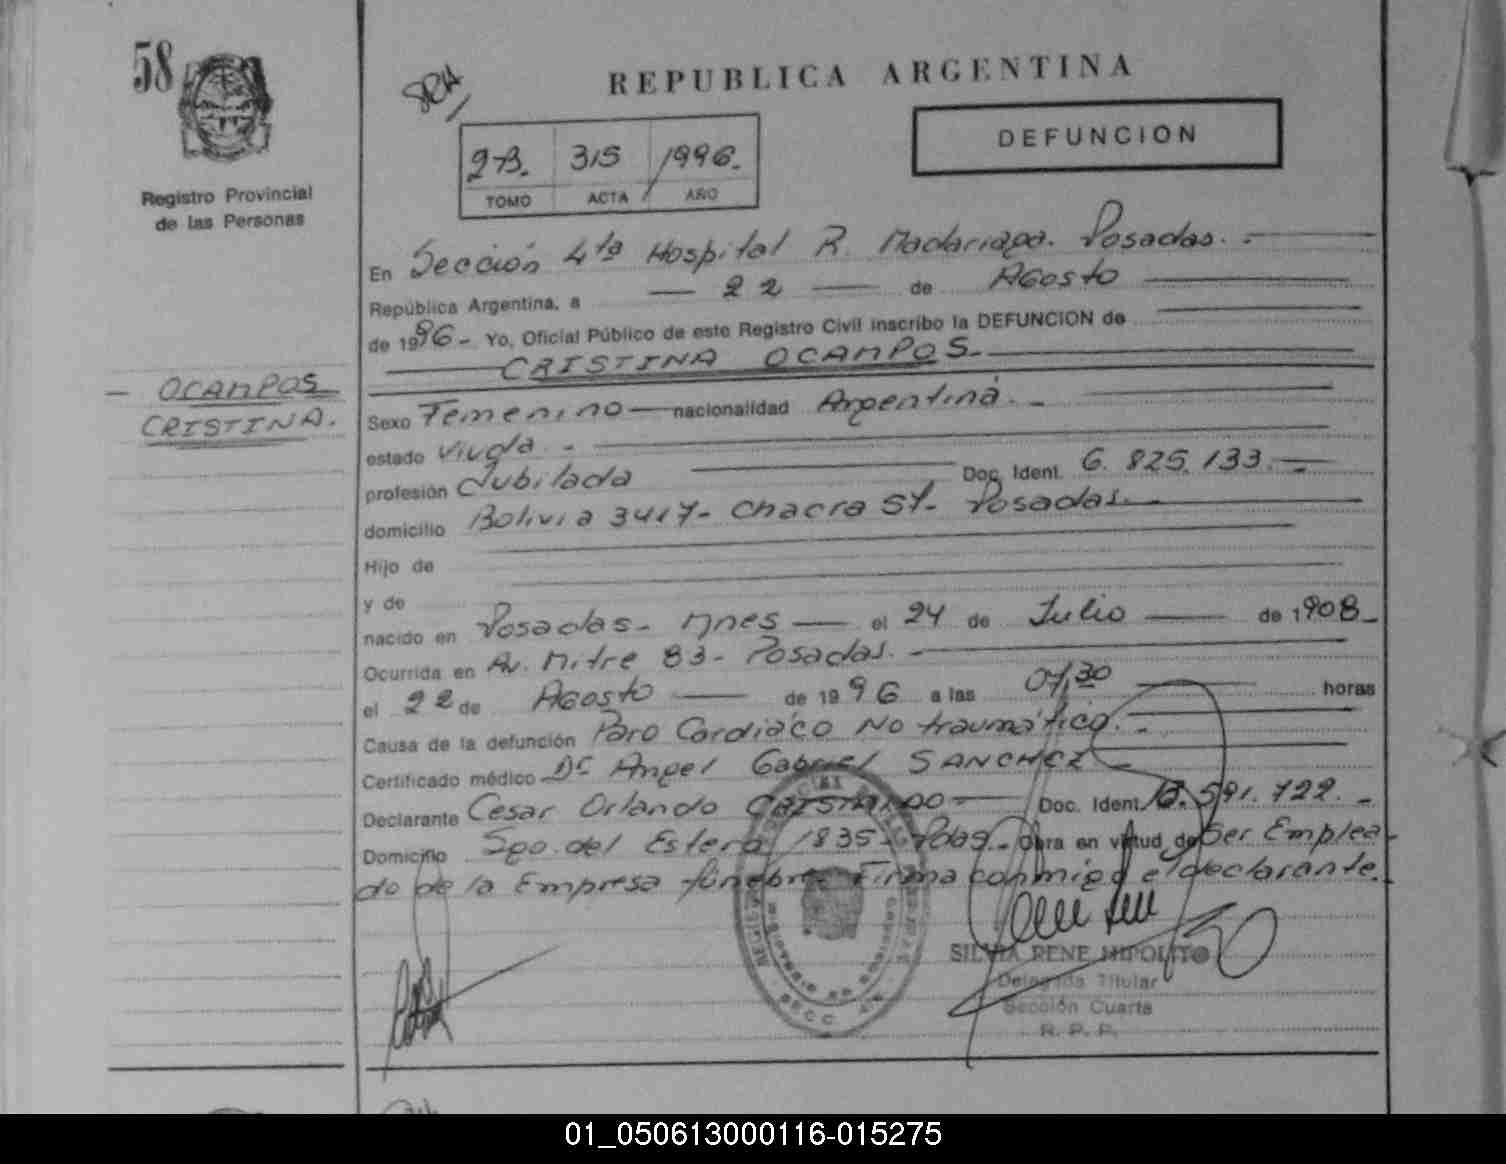 58
SRH
REPUBLICA ARGENTINA
DEFUNCION
2-B. 315 1996.
TOMO ACTA AÑO
Registro Provincial
de las Personas
En Sección 4ta Hospital R. Madariaga. Posadas.
República Argentina, a 22 de Agosto
de 1996- Yo, Oficial Público de este Registro Civil inscribo la DEFUNCION de
CRISTINA OCAMPOS.-
- OCAMPOS
CRISTINA.
Sexo Femenino nacionalidad Argentina.-
estado Viuda.-
profesión Jubilada Doc. Ident. 6.825.133.-
domicilio Bolivia 3417- Chacra 51- Posadas.
Hijo de
y de
nacido en Posadas- Mnes el 24 de Julio de 1908-
Ocurrida en Av. Mitre 83- Posadas.-
el 22 de Agosto de 1996 a las 07,30 horas
Causa de la defunción Paro Cardiáco No traumático.-
Certificado médico Dr. Angel Gabriel SANCHEZ-
Declarante Cesar Orlando CRISTALDO- Doc. Ident. .591.722.-
Domicilio Sgo. del Estero 1835- Pdas.- Obra en virtud de Ser Emplea-
do de la Empresa fúnebre Firma conmigo el declarante.
SILVIA RENE HIPOLITO
Delegada Titular
Sección Cuarta
R. P. P.
01_050613000116-015275